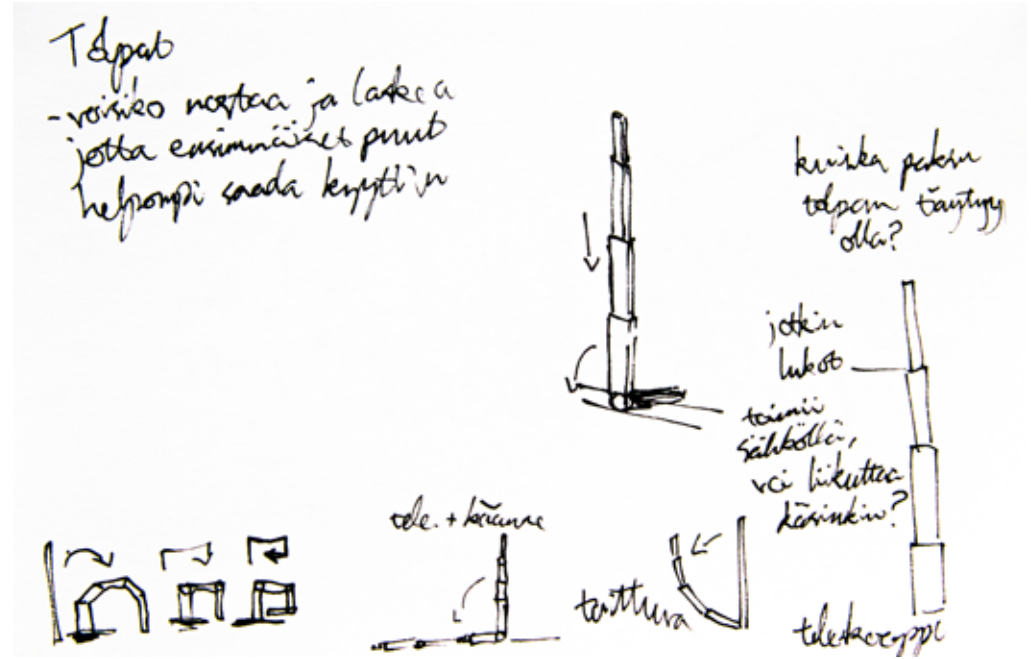 Tolpat
- voisiko nostaa ja laskea
jotta ensimmäiset puut
helpompi saada kyytiin
kuinka paksu
tolpan täytyy
olla?
jotkin
lukot
toimii
sähköllä,
voi liikuttaa
käsinkin?
tele. + käänne
taittuva
teleskooppi